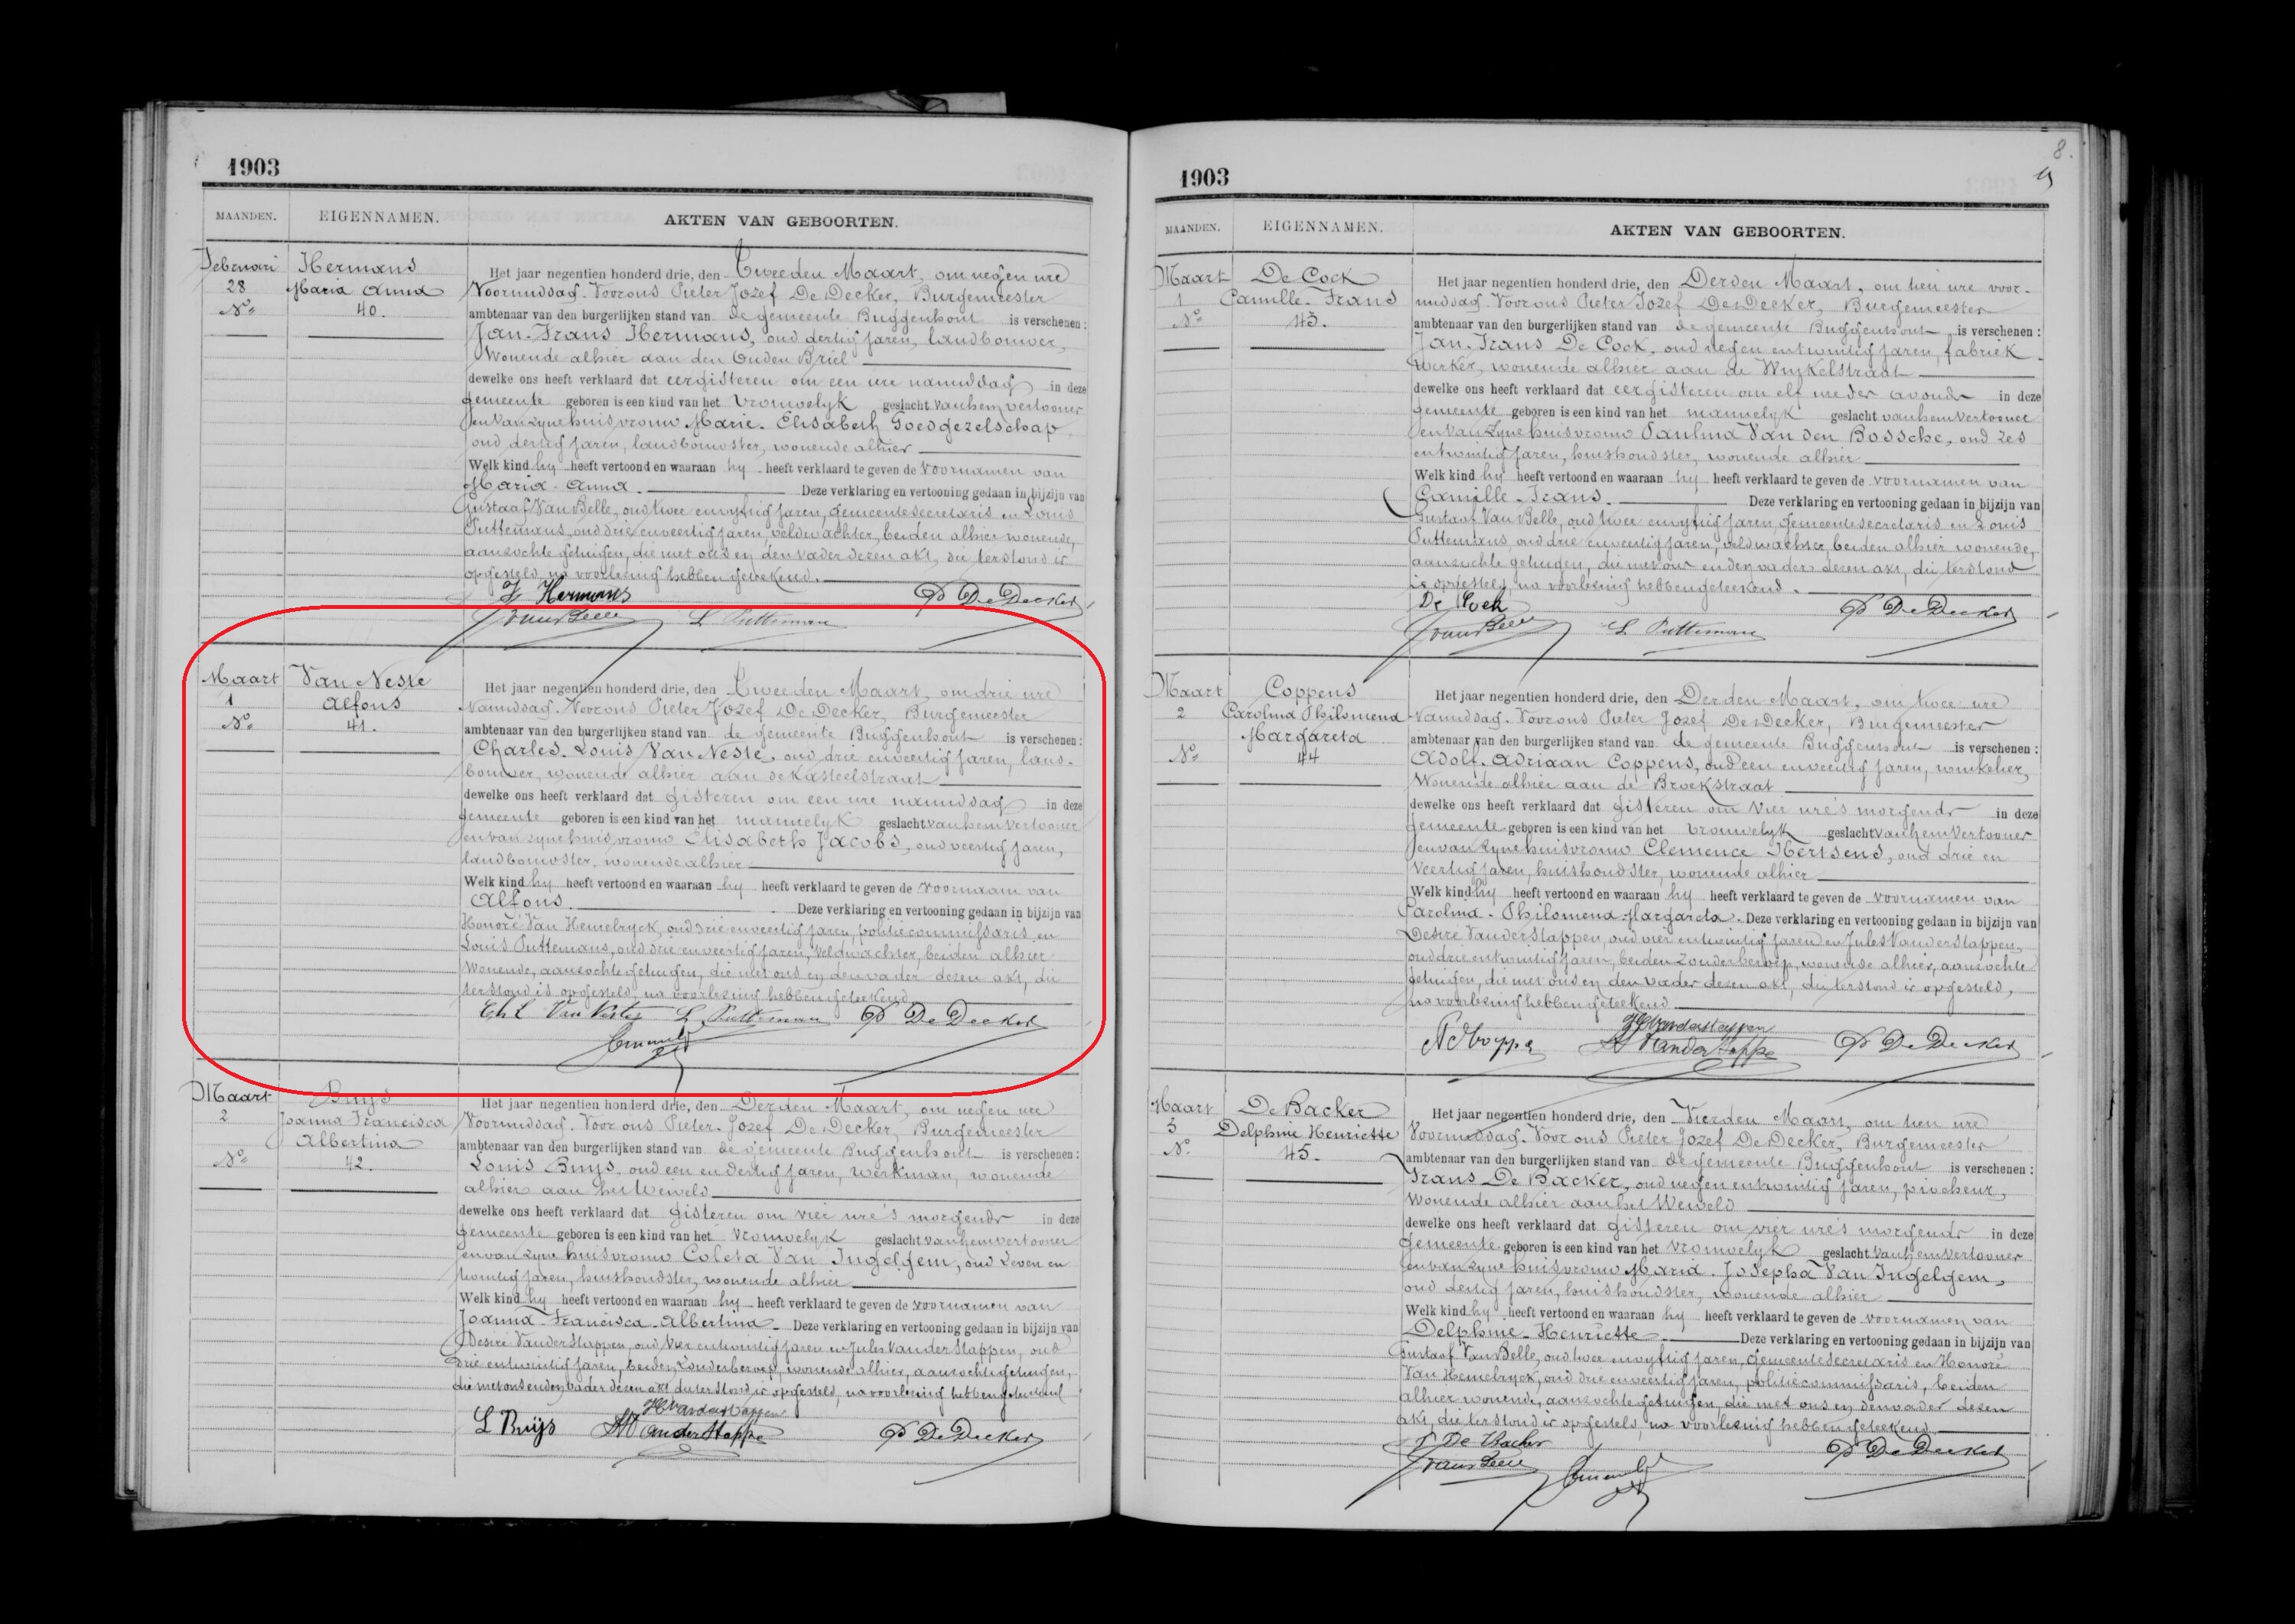 1903
MAANDEN. EIGENNAMEN. AKTEN VAN GEBOORTEN.
Februari Hermans
28 Maria Anna
No 40.
Het jaar negentien honderd drie, den Tweeden Maart, om negen ure
Voormiddag. Voor ons Pieter Jozef De Decker, Burgemeester
ambtenaar van den burgerlijken stand van de gemeente Buggenhout is verschenen:
Jan-Frans Hermans, oud dertig jaren, landbouwer,
Wonende alhier aan den Ouden Briel
dewelke ons heeft verklaard dat eergisteren om een ure namiddag in deze
gemeente geboren is een kind van het vrouwelyk geslacht van hem vertooner
en van zyne huisvrouw Marie-Elisabeth Goedgezelschap,
oud dertig jaren, landbouwster, wonende alhier
Welk kind hy heeft vertoond en waaraan hy heeft verklaard te geven de voornamen van
Maria-Anna. Deze verklaring en vertooning gedaan in bijzijn van
Gustaaf Van Belle, oud twee en vyftig jaren, gemeentesecretaris en Louis
Puttemans, oud drie en veertig jaren, veldwachter, beiden alhier wonende,
aanzochte getuigen, die met ons en den vader dezen akt, die terstond is
opgesteld, na voorlezing hebben geteekend.
Hermans P De Decker
VanBelle L Putteman
Maart Van Neste
1 Alfons
No 41.
Het jaar negentien honderd drie, den Tweeden Maart, om drie ure
Namiddag. Voor ons Pieter Jozef De Decker, Burgemeester
ambtenaar van den burgerlijken stand van de gemeente Buggenhout is verschenen:
Charles-Louis Van Neste, oud drie en veertig jaren, land-
bouwer, wonende alhier aan de Kasteelstraat
dewelke ons heeft verklaard dat gisteren om een ure namiddag in deze
gemeente geboren is een kind van het mannelyk geslacht van hem vertooner
en van zyne huisvrouw Elisabeth Jacobs, oud veertig jaren,
landbouwster, wonende alhier
Welk kind hy heeft vertoond en waaraan hy heeft verklaard te geven de voornaam van
Alfons. Deze verklaring en vertooning gedaan in bijzijn van
Honoré Van Hemelryck, oud drie en veertig jaren, politiecommissaris en
Louis Puttemans, oud drie en veertig jaren, veldwachter, beiden alhier
Wonende, aanzochte getuigen, die met ons en den vader dezen akt, die
terstond is opgesteld, na voorlezing hebben geteekend
Ch L Van Neste L. Putteman P De Decker
Maart Buys
2 Joanna Francisca
Albertina
No 42.
Het jaar negentien honderd drie, den Derden Maart, om negen ure
Voormiddag. Voor ons Pieter-Jozef De Decker, Burgemeester
ambtenaar van den burgerlijken stand van de gemeente Buggenhout is verschenen:
Louis Buys, oud een en dertig jaren, werkman, wonende
alhier aan het Weiveld
dewelke ons heeft verklaard dat gisteren om vier ure 's morgends in deze
gemeente geboren is een kind van het vrouwelyk geslacht van hem vertooner
en van zyne huisvrouw Coleta Van Ingelgem, oud zeven en
twintig jaren, huishoudster, wonende alhier
Welk kind hy heeft vertoond en waaraan hy heeft verklaard te geven de voornamen van
Joanna-Francisca-Albertina. Deze verklaring en vertooning gedaan in bijzijn van
Desiré Van der Stappen, oud vier en twintig jaren en Jules Van der Stappen, oud
drie en twintig jaren, beiden zonder beroep, wonende alhier, aanzochte getuigen,
die met ons en den vader dezen akt die terstond is opgesteld, na voorlezing hebben geteekend
L Buijs Vanderstappen P De Decker
1903
8.
MAANDEN. EIGENNAMEN. AKTEN VAN GEBOORTEN.
Maart De Cock
1 Camille-Frans
No 43.
Het jaar negentien honderd drie, den Derden Maart, om tien ure voor-
middag. Voor ons Pieter Jozef De Decker, Burgemeester
ambtenaar van den burgerlijken stand van de gemeente Buggenhout is verschenen:
Jan-Frans De Cock, oud negen en twintig jaren, fabriek-
werker, wonende alhier aan de Winkelstraat
dewelke ons heeft verklaard dat eergisteren om elf ure der avonds in deze
gemeente geboren is een kind van het mannelyk geslacht van hem vertooner
en van zyne huisvrouw Paulina Van den Bossche, oud zes
en twintig jaren, huishoudster, wonende alhier
Welk kind hy heeft vertoond en waaraan hy heeft verklaard te geven de voornamen van
Camille-Frans. Deze verklaring en vertooning gedaan in bijzijn van
Gustaaf Van Belle, oud twee en vyftig jaren, gemeentesecretaris en Louis
Puttemans, oud drie en veertig jaren, veldwachter, beiden alhier wonende,
aanzochte getuigen, die met ons en den vader dezen akt, die terstond
is opgesteld, na voorlezing hebben geteekend.
De Cock P De Decker
VanBelle L Putteman
Maart Coppens
2 Carolina Philomena
Margareta
No 44
Het jaar negentien honderd drie, den Derden Maart, om twee ure
Namiddag. Voor ons Pieter Jozef De Decker, Burgemeester
ambtenaar van den burgerlijken stand van de gemeente Buggenhout is verschenen:
Adolf-Adriaan Coppens, oud een en veertig jaren, winkelier,
Wonende alhier aan de Broekstraat
dewelke ons heeft verklaard dat gisteren om vier ure 's morgends in deze
gemeente geboren is een kind van het vrouwelyk geslacht van hem vertooner
en van zyne huisvrouw Clemence Hertsens, oud drie en
veertig jaren, huishoudster, wonende alhier
Welk kind hy heeft vertoond en waaraan hy heeft verklaard te geven de voornamen van
Carolina-Philomena-Margareta. Deze verklaring en vertooning gedaan in bijzijn van
Desiré Van der Stappen, oud vier en twintig jaren en Jules Van der Stappen,
oud drie en twintig jaren, beiden zonder beroep, wonende alhier, aanzochte
getuigen, die met ons en den vader dezen akt, die terstond is opgesteld,
na voorlezing hebben geteekend
Vanderstappen P De Decker
Maart De Backer
3 Delphine Henriette
No 45.
Het jaar negentien honderd drie, den Vierden Maart, om tien ure
Voormiddag. Voor ons Pieter Jozef De Decker, Burgemeester
ambtenaar van den burgerlijken stand van de gemeente Buggenhout is verschenen:
Frans De Backer, oud negen en twintig jaren, piocheur,
Wonende alhier aan het Weiveld
dewelke ons heeft verklaard dat gisteren om vier ure 's morgends in deze
gemeente geboren is een kind van het vrouwelyk geslacht van hem vertooner
en van zyne huisvrouw Maria-Josepha Van Ingelgem,
oud dertig jaren, huishoudster, wonende alhier
Welk kind hy heeft vertoond en waaraan hy heeft verklaard te geven de voornamen van
Delphine-Henriette. Deze verklaring en vertooning gedaan in bijzijn van
Gustaaf Van Belle, oud twee en vyftig jaren, gemeentesecretaris en Honoré
Van Hemelryck, oud drie en veertig jaren, politiecommissaris, beiden
alhier wonende, aanzochte getuigen, die met ons en den vader dezen
akt, die terstond is opgesteld, na voorlezing hebben geteekend
F De Backer P De Decker
VanBelle